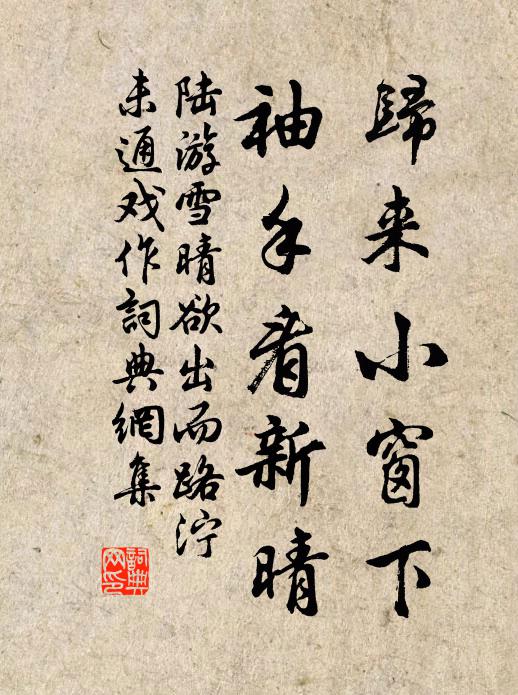 歸来小窗下
袖手看新晴
陆游雪晴欲出而路泞
未通戏作詞典網集
詞典网印